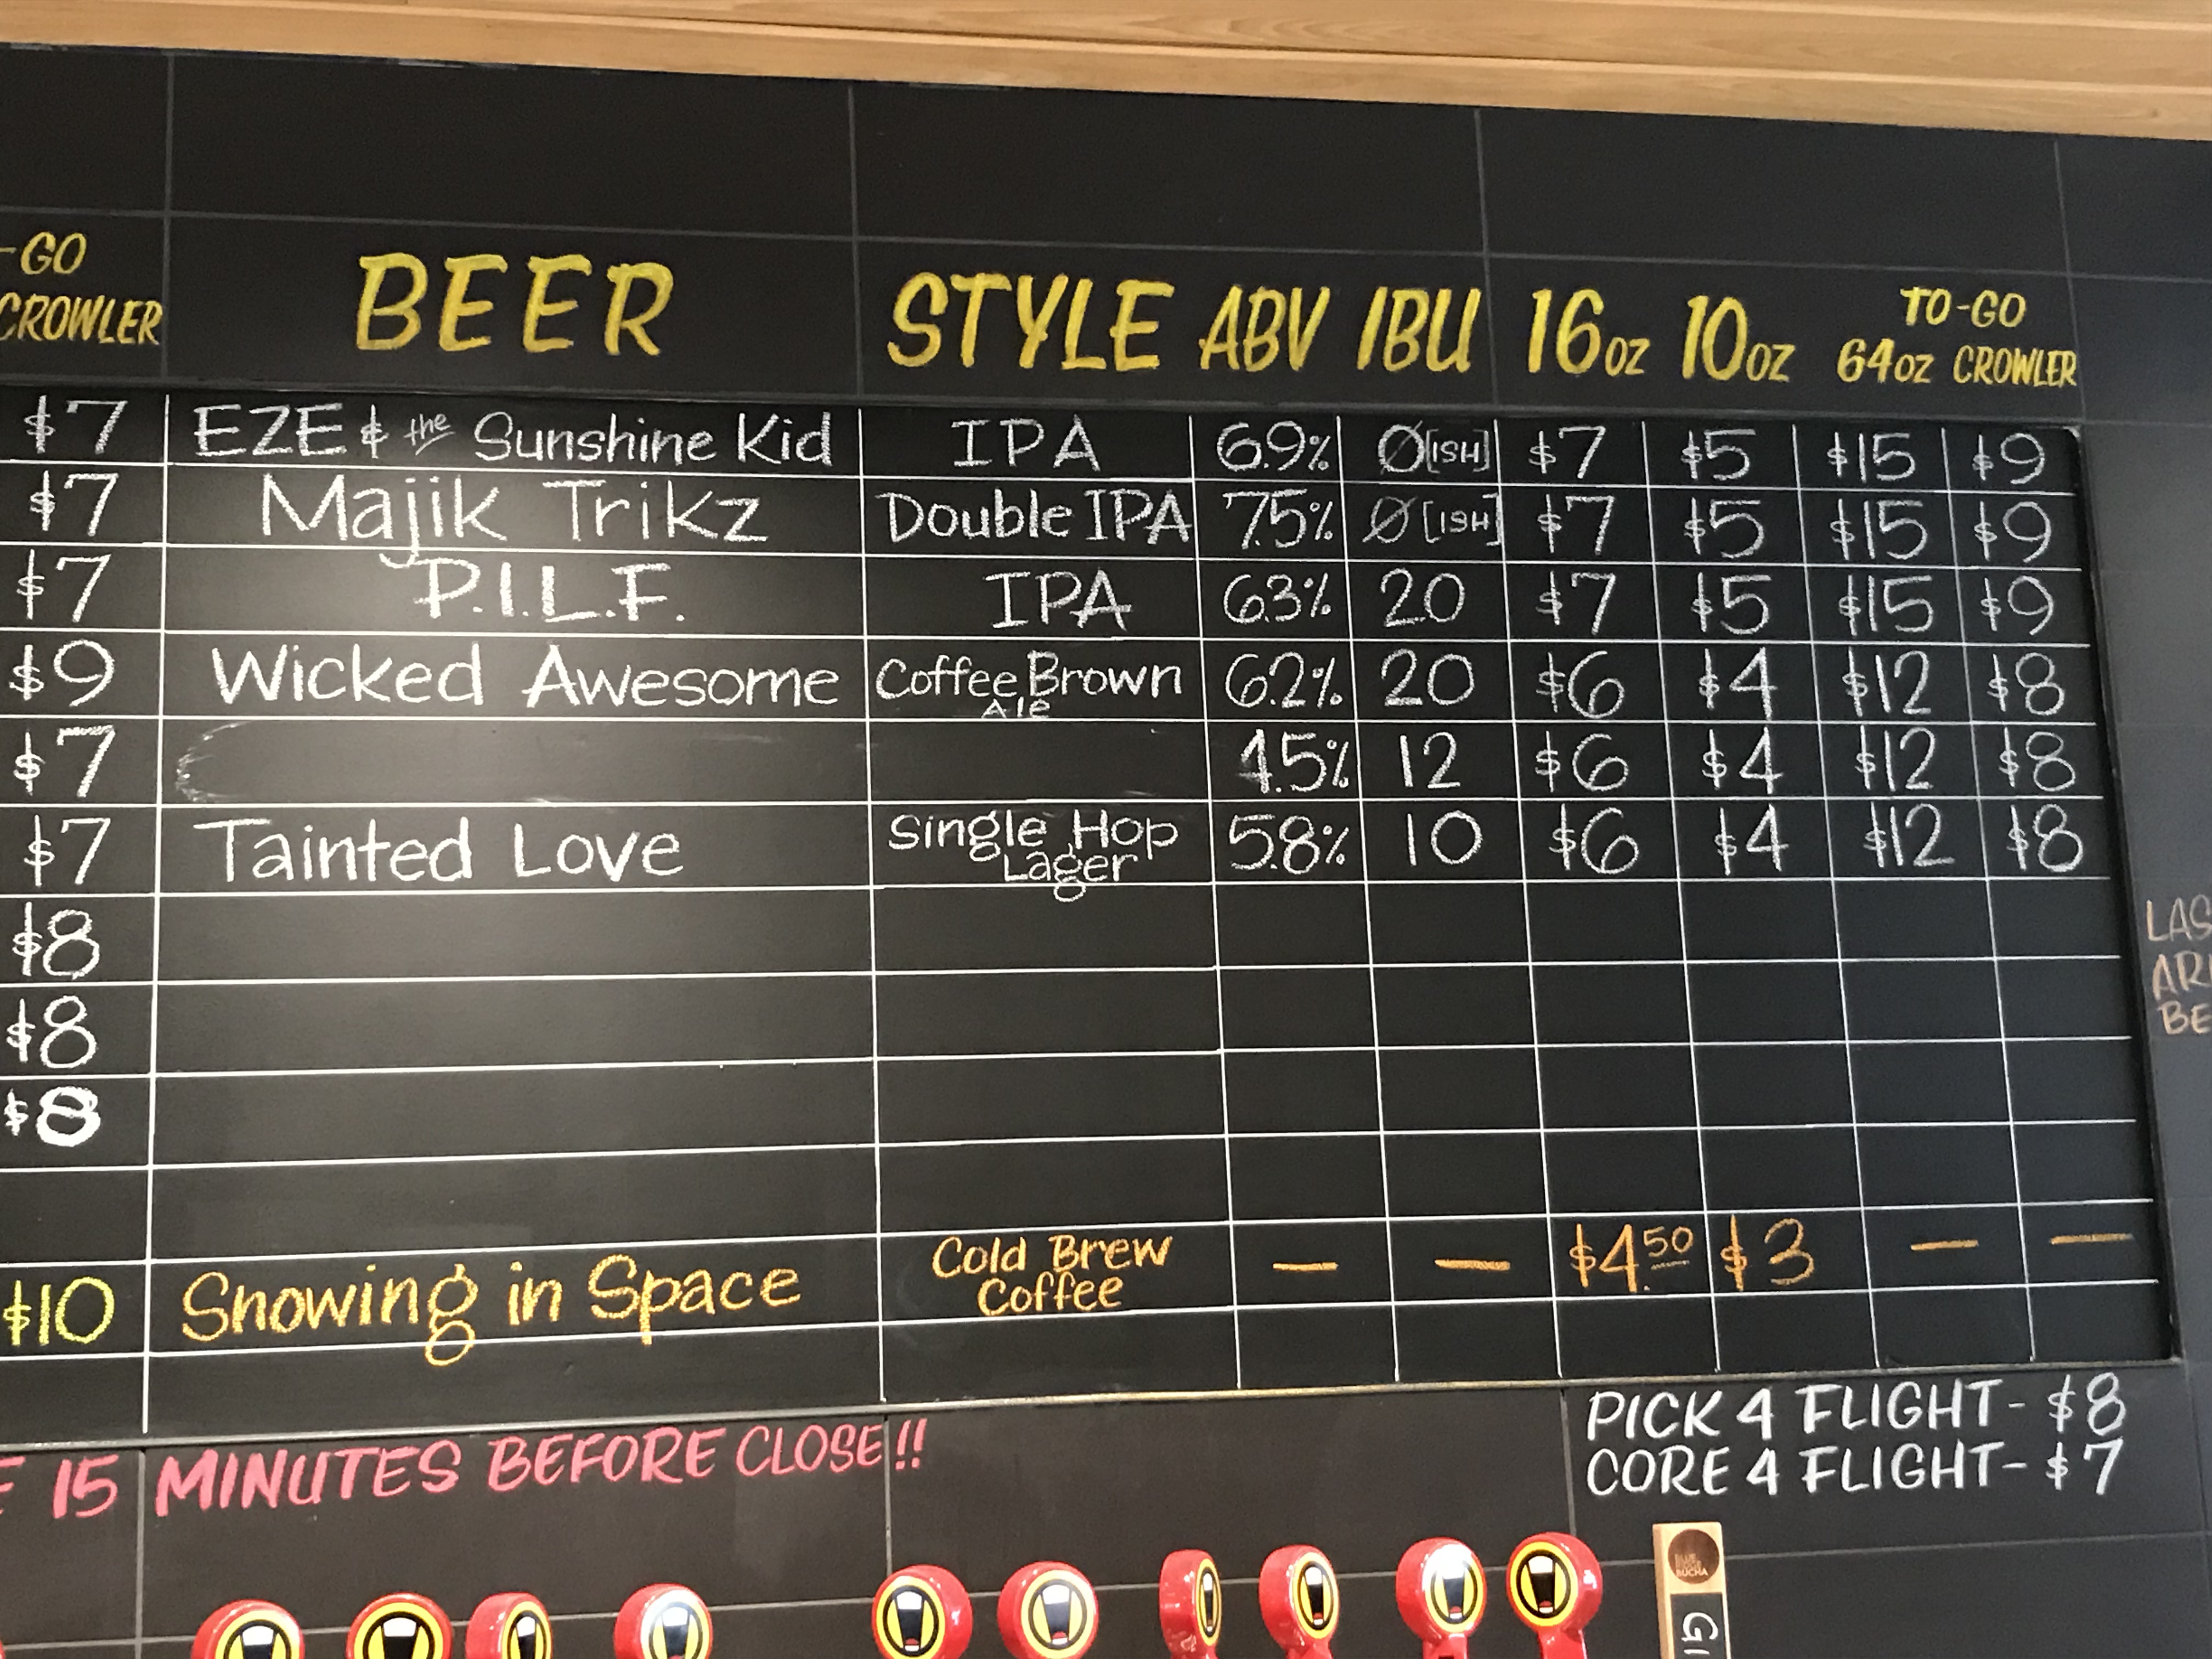 -GO
CROWLER
BEER STYLE ABV IBU 16oz 10oz TO-GO
64oz CROWLER
$7 EZE & the Sunshine Kid IPA 6.9% Ø[ISH] $7 $5 $15 $9
$7 Majik Trikz Double IPA 7.5% Ø[ISH] $7 $5 $15 $9
$7 P.I.L.F. IPA 6.3% 20 $7 $5 $15 $9
$9 Wicked Awesome Coffee Brown Ale 6.2% 20 $6 $4 $12 $8
$7 4.5% 12 $6 $4 $12 $8
$7 Tainted Love Single Hop Lager 5.8% 10 $6 $4 $12 $8
$8
$8
$8
$10 Snowing in Space Cold Brew Coffee — — $4.50 $3 — —
LAS
AR
BE
E 15 MINUTES BEFORE CLOSE!!
PICK 4 FLIGHT - $8
CORE 4 FLIGHT - $7
BUCHA
GI